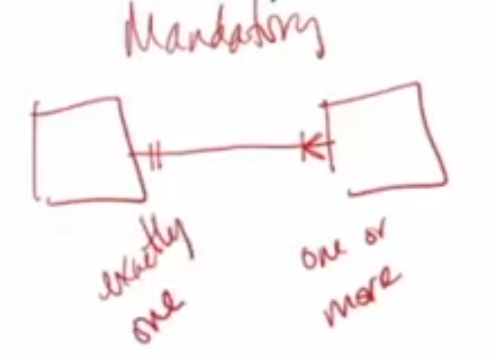 Mandatory
exactly
one
one or
more